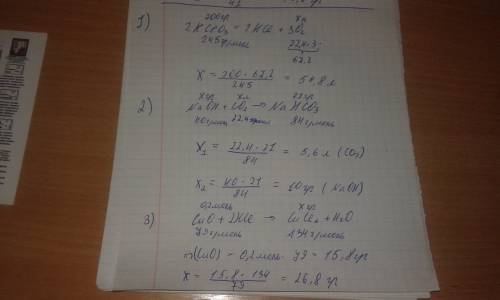 1)
200гр хл
2KClO3 = 2KCl + 3O2
245гр/моль 22,4·3
67,2
X = 200·67,2 / 245 = 54,8 л
2)
хгр хл 21гр
NaOH + CO2 → NaHCO3
40гр/моль 22,4л/моль 84гр/моль
X1 = 22,4·21 / 84 = 5,6 л (CO2)
X2 = 40·21 / 84 = 10гр (NaOH)
3)
0,2моль хгр
CuO + 2HCl → CuCl2 + H2O
79гр/моль 134гр/моль
m(CuO) - 0,2моль·79 = 15,8гр
X = 15,8·134 / 79 = 26,8 гр